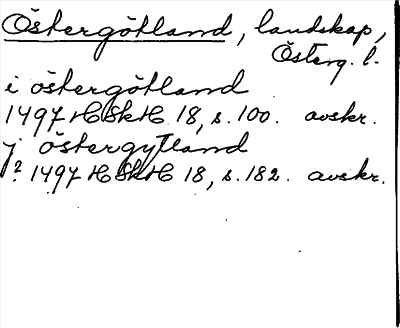 Östergötland, landskap,
Österg. l.
i östergötland
1497 HSkH 18, s. 100. avskr.
j östergytland
? 1497 HSkH 18, s. 182. avskr.